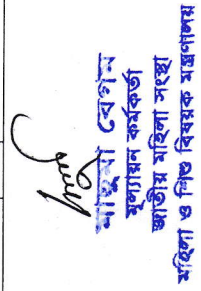 মূল্যায়ন কর্মকর্তা
জাতীয় মহিলা সংস্থা
মহিলা ও শিশু বিষয়ক মন্ত্রণালয়